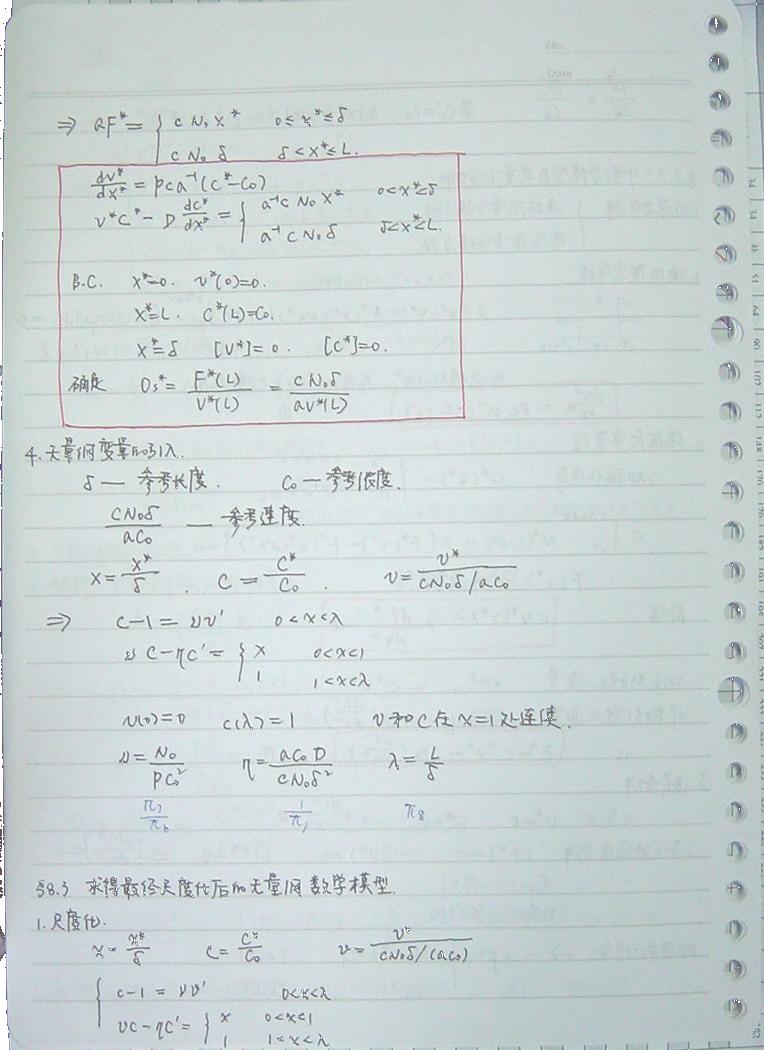 No.
Date
⇒ aF* = { c N₀ x*   0 ≤ x* ≤ δ
c N₀ δ   δ < x* ≤ L.
dv*/dx* = p c a⁻¹ (C* - C₀)
v*C* - D dC*/dx* = { a⁻¹ c N₀ x*   0 < x* ≤ δ
a⁻¹ c N₀ δ   δ < x* ≤ L.
B.C.   x* = 0.   v*(0) = 0.
x* = L.   C*(L) = C₀.
x* = δ   [v*] = 0.   [C*] = 0.
确定   Os* = F*(L)/v*(L) = c N₀ δ / a v*(L)
4. 无量纲变量的引入.
δ — 参考长度.   C₀ — 参考浓度.
c N₀ δ / a C₀ — 参考速度.
x = x*/δ .   C = C*/C₀ .   v = v* / (c N₀ δ / a C₀)
⇒   c - 1 = ν v'   0 < x < λ
v c - η c' = { x   0 < x < 1
1   1 < x < λ
v(0) = 0   c(λ) = 1   v 和 c 在 x = 1 处连续.
ν = N₀ / p C₀²   η = a C₀ D / c N₀ δ²   λ = L/δ
π₇/π₆   1/π₇   π₈
§8.3 求得最终尺度化后的无量纲数学模型.
1. 尺度化.
x = x*/δ   c = C*/C₀   v = v* / (c N₀ δ / (a C₀))
{ c - 1 = ν v'   0 < x < λ
v c - η c' = { x   0 < x < 1
1   1 < x < λ